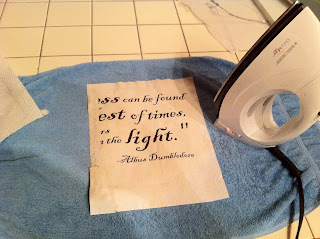 ss can be found
est of times,
s
the light."
-Albus Dumbledore